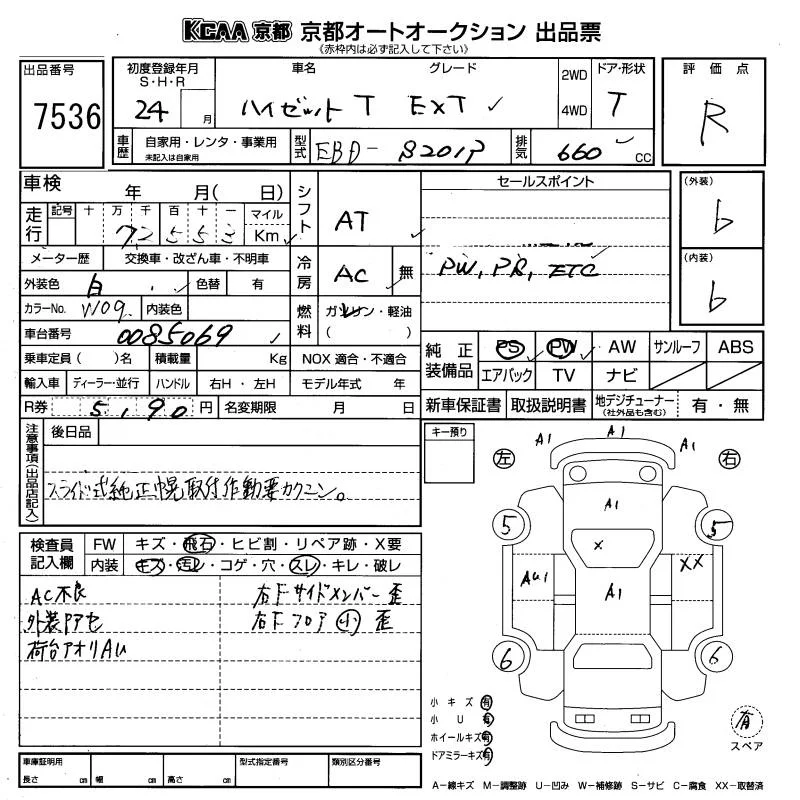 KCAA 京都 京都オートオークション 出品票
《赤枠内は必ず記入して下さい》
出品番号
7536
初度登録年月
S・H・R
24 月
車名 グレード
ハイゼットT EXT
2WD
4WD
ドア・形状
T
評価点
R
車歴
自家用・レンタ・事業用
未記入は自家用
型式
EBD-S201P
排気
660 cc
車検 年 月( 日)
走行
記号 十 万 千 百 十 一 マイル
Km
シフト
AT
セールスポイント
PW, PR, ETC
(外装)
6
(内装)
6
メーター歴 交換車・改ざん車・不明車
冷房
AC 無
外装色 白 色替 有
カラーNo. W09 内装色
燃料
ガソリン・軽油
( )
車台番号 0085069
乗車定員( )名 積載量 Kg NOX 適合・不適合
輸入車 ディーラー・並行 ハンドル 右H・左H モデル年式 年
R券 5,190 円 名変期限 月 日
純正装備品
PS PW AW サンルーフ ABS
エアバック TV ナビ
新車保証書 取扱説明書 地デジチューナー(社外品も含む) 有・無
注意事項(出品店記入)
後日品
スライド式純正幌取付作動要カクニン。
キー預り
検査員記入欄
FW キズ・飛石・ヒビ割・リペア跡・X要
内装 キズ・汚レ・コゲ・穴・スレ・キレ・破レ
AC不良 右Fサイドメンバー歪
外装ドアセ 右Fフロア小歪
荷台アオリAU
左 右
A1 A1 A1
A1
5 5
X
AU1 A1 XX
6 6
小キズ 有
小U 有
ホイールキズ 有
ドアミラーキズ 有
有
スペア
車庫証明用
長さ cm 幅 cm 高さ cm
型式指定番号 類別区分番号
A-線キズ M-調整跡 U-凹み W-補修跡 S-サビ C-腐食 XX-取替済